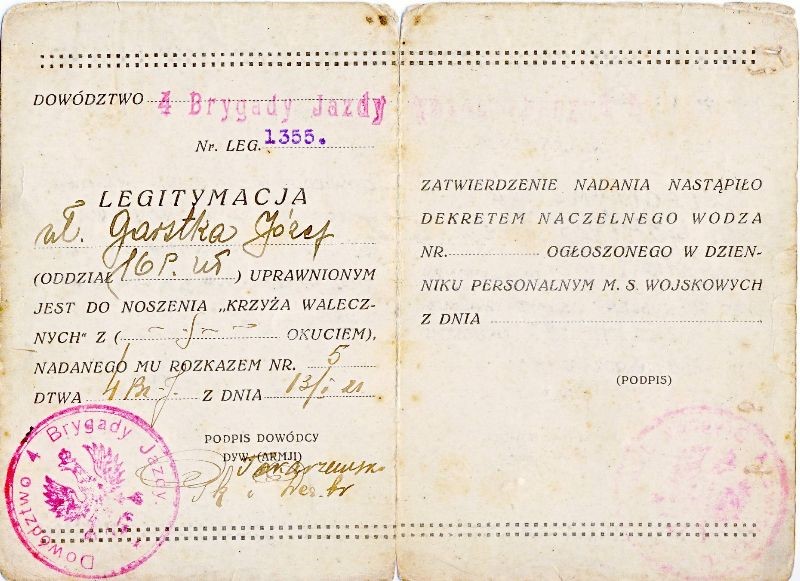 DOWÓDZTWO 4 Brygady Jazdy
Nr. LEG. 1355.
LEGITYMACJA
uł. Garstka Józef
(ODDZIAŁ 16 P. uł) UPRAWNIONYM
JEST DO NOSZENIA „KRZYŻA WALECZ-
NYCH" Z ( OKUCIEM),
NADANEGO MU ROZKAZEM NR. 5
DTWA 4 Br. J. Z DNIA 13/I 21
PODPIS DOWÓDCY
DYW. (ARMJI)
Dowództwo 4 Brygady Jazdy
ZATWIERDZENIE NADANIA NASTĄPIŁO
DEKRETEM NACZELNEGO WODZA
NR. OGŁOSZONEGO W DZIEN-
NIKU PERSONALNYM M. S. WOJSKOWYCH
Z DNIA
(PODPIS)